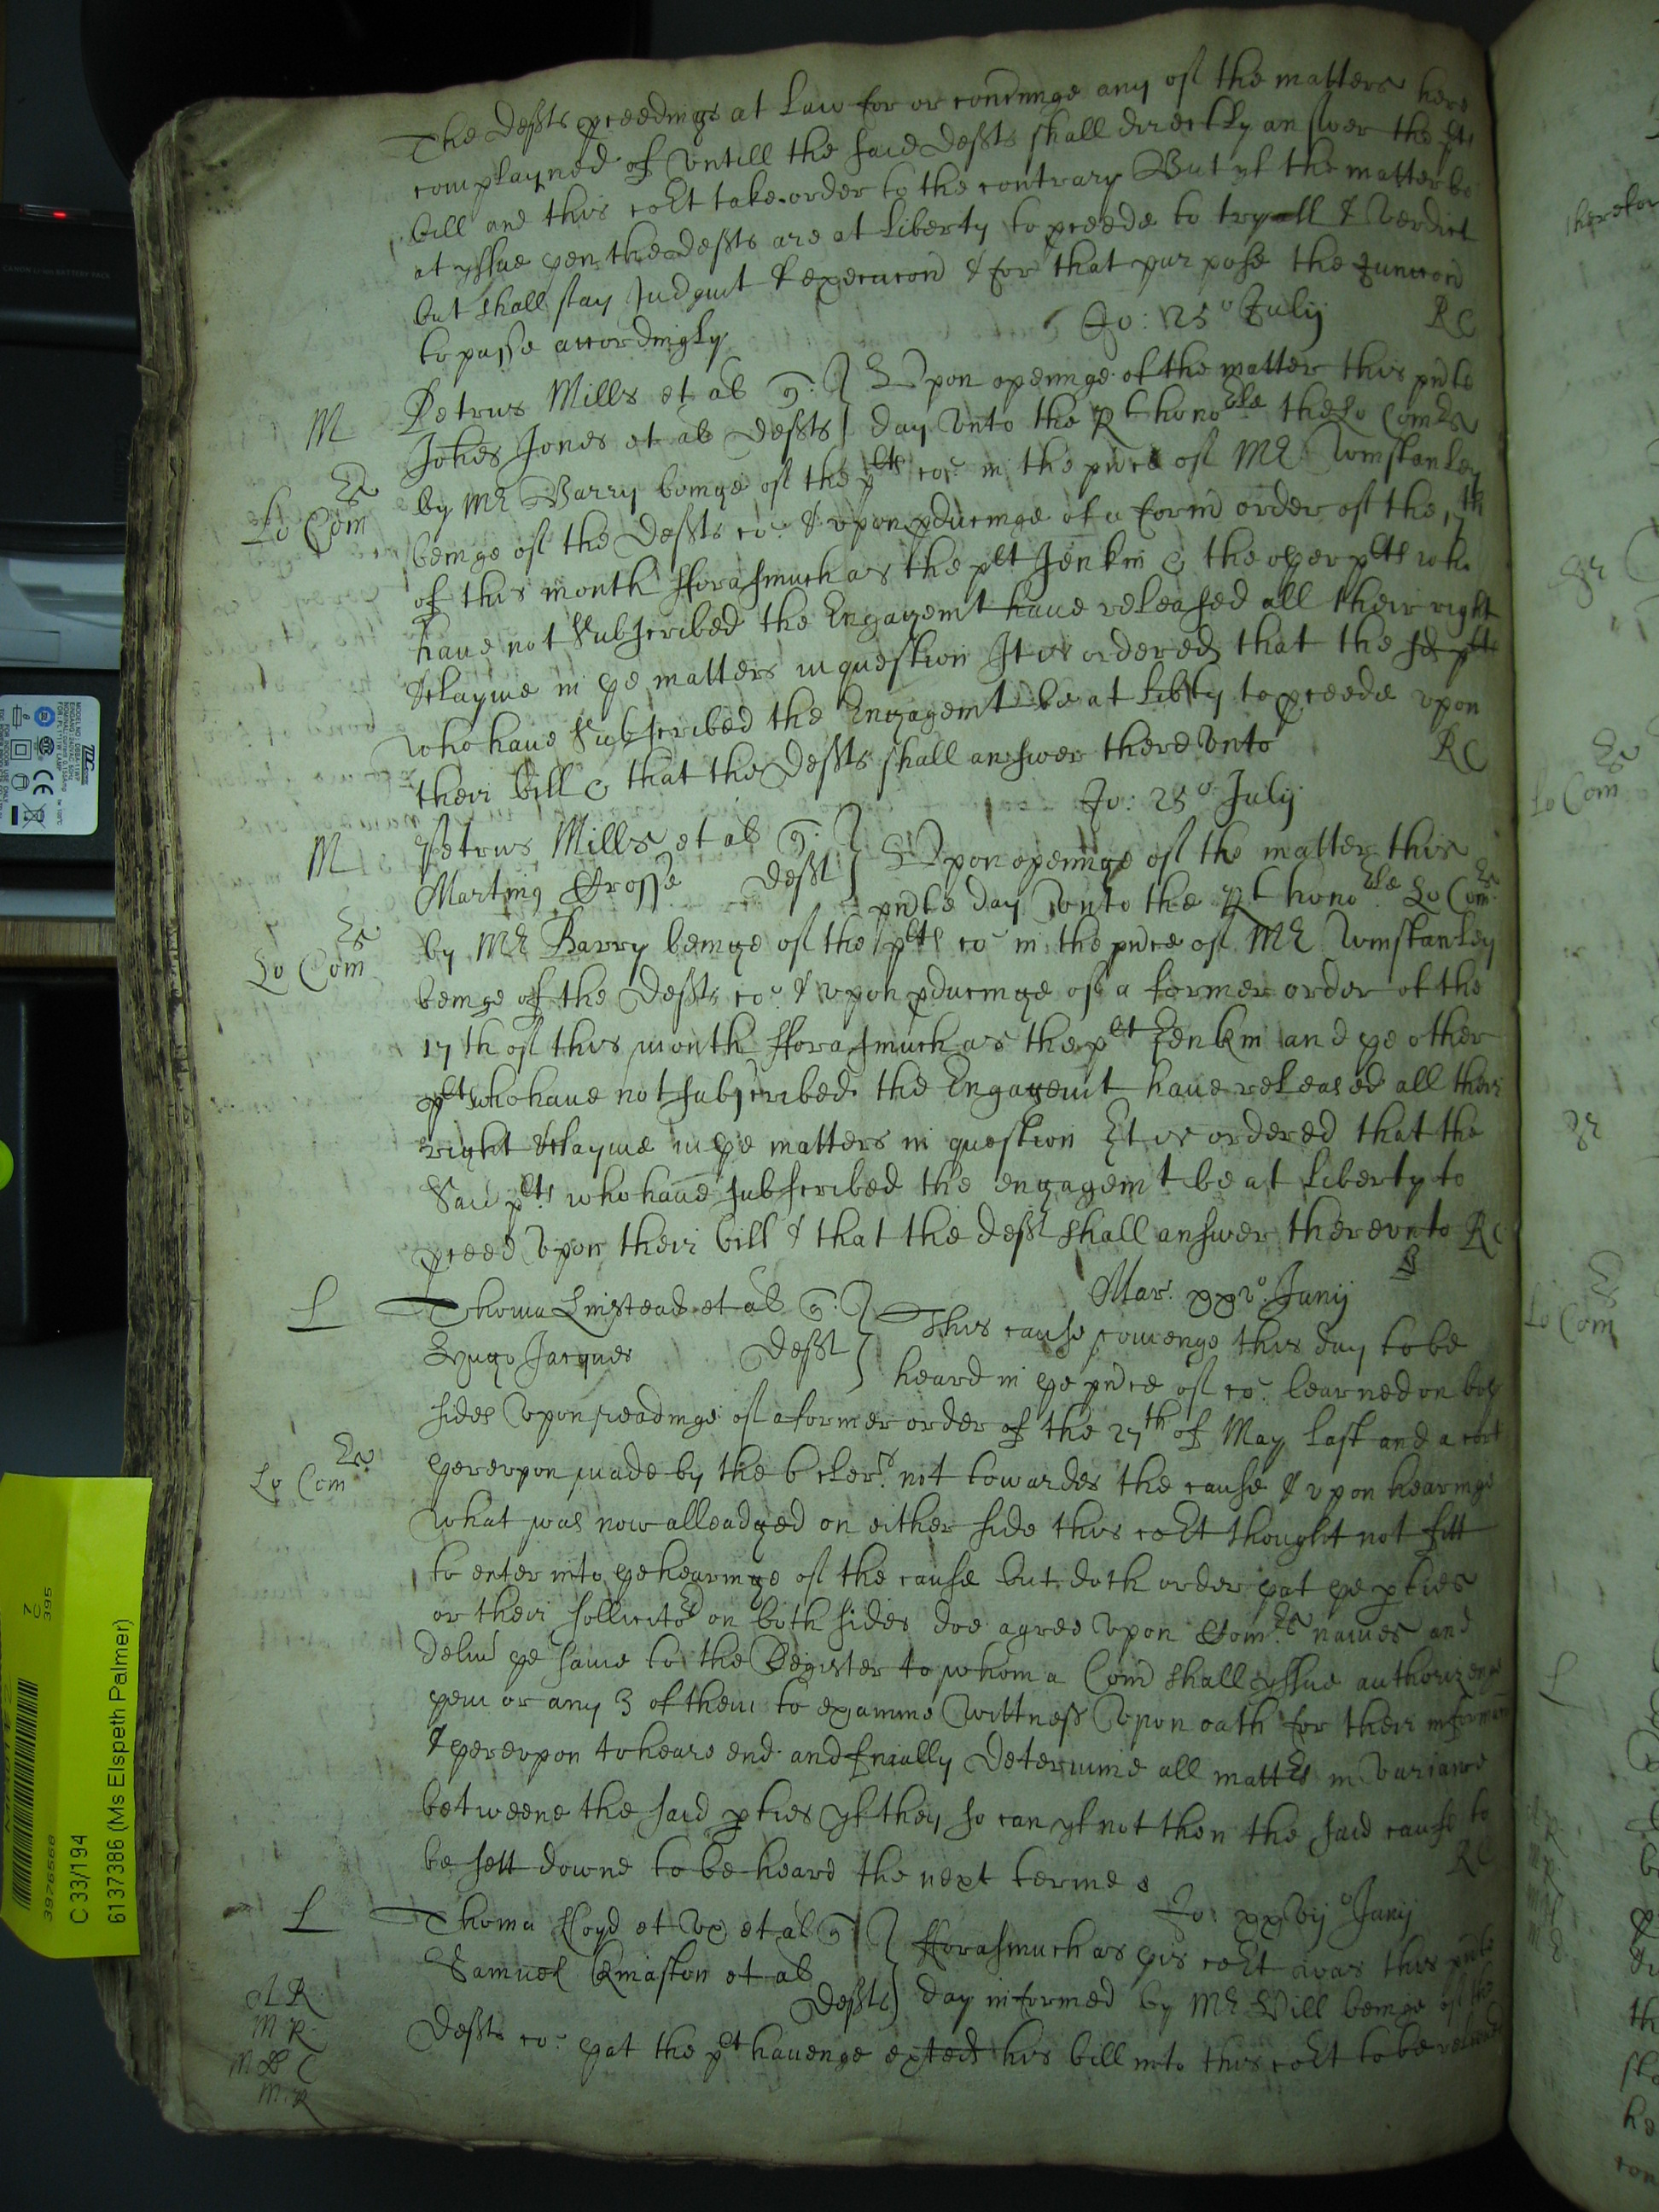 The Defts pceedings at Law for or concninge any of the matters here
complayned of Untill the said Defts shall directly answer the plts
bill and this coȝt take order to the contrary But yf the matter be
at yssue yen the Defts are at Liberty to pceede to tryall & Verdict
but shall stay Judgmt & execucon & for that purpose the Juncon
to passe accordingly
Jo: 25º July RC
M Petrus Mills et al q: } Upon openinge of the matter this pnte
Johes Jones et al Defts } day Unto the Rt honoble the Lo Comrs
Lo Comrs by Mr Barry beinge of the plts co: in the pnce of Mr Winstanley
beinge of the Defts co: & upon pducinge of a formr order of the 17th
of this month fforasmuch as the plt Jenkin & the oyer plts who
have not Subscribed the Engagemt have released all their right
& clayme in ye matters in question It is ordered that the sd plts
who have Subscribed the Engagemt be at libty to pceede upon
their bill & that the Defts shall answer there Unto RC
Jo: 25º July
M Petrus Mills et al q: } Upon openinge of the matter this
Martinus Crosse Deft } pnte day Unto the Rt honoble Lo Comrs
Lo Comrs by Mr Barry beinge of the plts co: in the pnce of Mr Winstanley
beinge of the Defts co: & upon pducinge of a former order of the
17th of this month fforasmuch as the plt Jenkin and ye other
plts who have not subscribed the Engagemt have released all their
right & clayme in ye matters in question It is ordered that the
Said plts who have subscribed the engagemt be at Liberty to
pceed Upon their bill & that the Deft shall answer thereunto RC
Mar. xxvº Junij
L Thoma Linstead et al q: } This cause cominge this day to be
Hugo Jacques Deft } heard in ye pnce of co: learned on boy
sides Upon readinge of a former order of the 27th of May last and a cert
Lo Comrs yereupon made by the 6 clers not towardes the cause & upon hearinge
what was now alleadged on either side this coȝt thought not fitt
to enter into ye hearinge of the cause but doth order yat ye pties
or their sollicitors on both sides doe agree Upon Comrs names and
deliu ye same to the Register to whom a Com shall yssue authorizenge
yem or any 3 of them to examine Wittness Upon oath for their informacon
& yereupon to heare end and finially Determine all mattrs in variance
betweene the said pties yf they so can yf not then the said cause to
be sett downe to be heard the next terme RC
Jo: xxvijº Junij
L Thoma ffloyd et Ux et al q: } fforasmuch as yis coȝt was this pnte
Samuel Kinaston et al Defts } day informed by Mr Hill beinge of the
Defts co: yat the plt havenge exted his bill into this coȝt to be
A R
M R
M R
C 33/194
6137386 (Ms Elspeth Palmer)